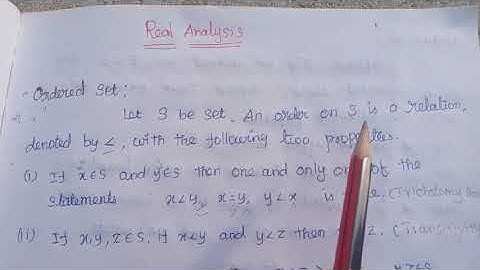 Real Analysis
Ordered Set:
Let S be set. An order on S is a relation,
denoted by <, with the following two
(i) If x∈S and y∈S then one and only of the
statements x<y, x=y, y<x is
(ii) If x,y,z∈S, if x<y and y<z then z.